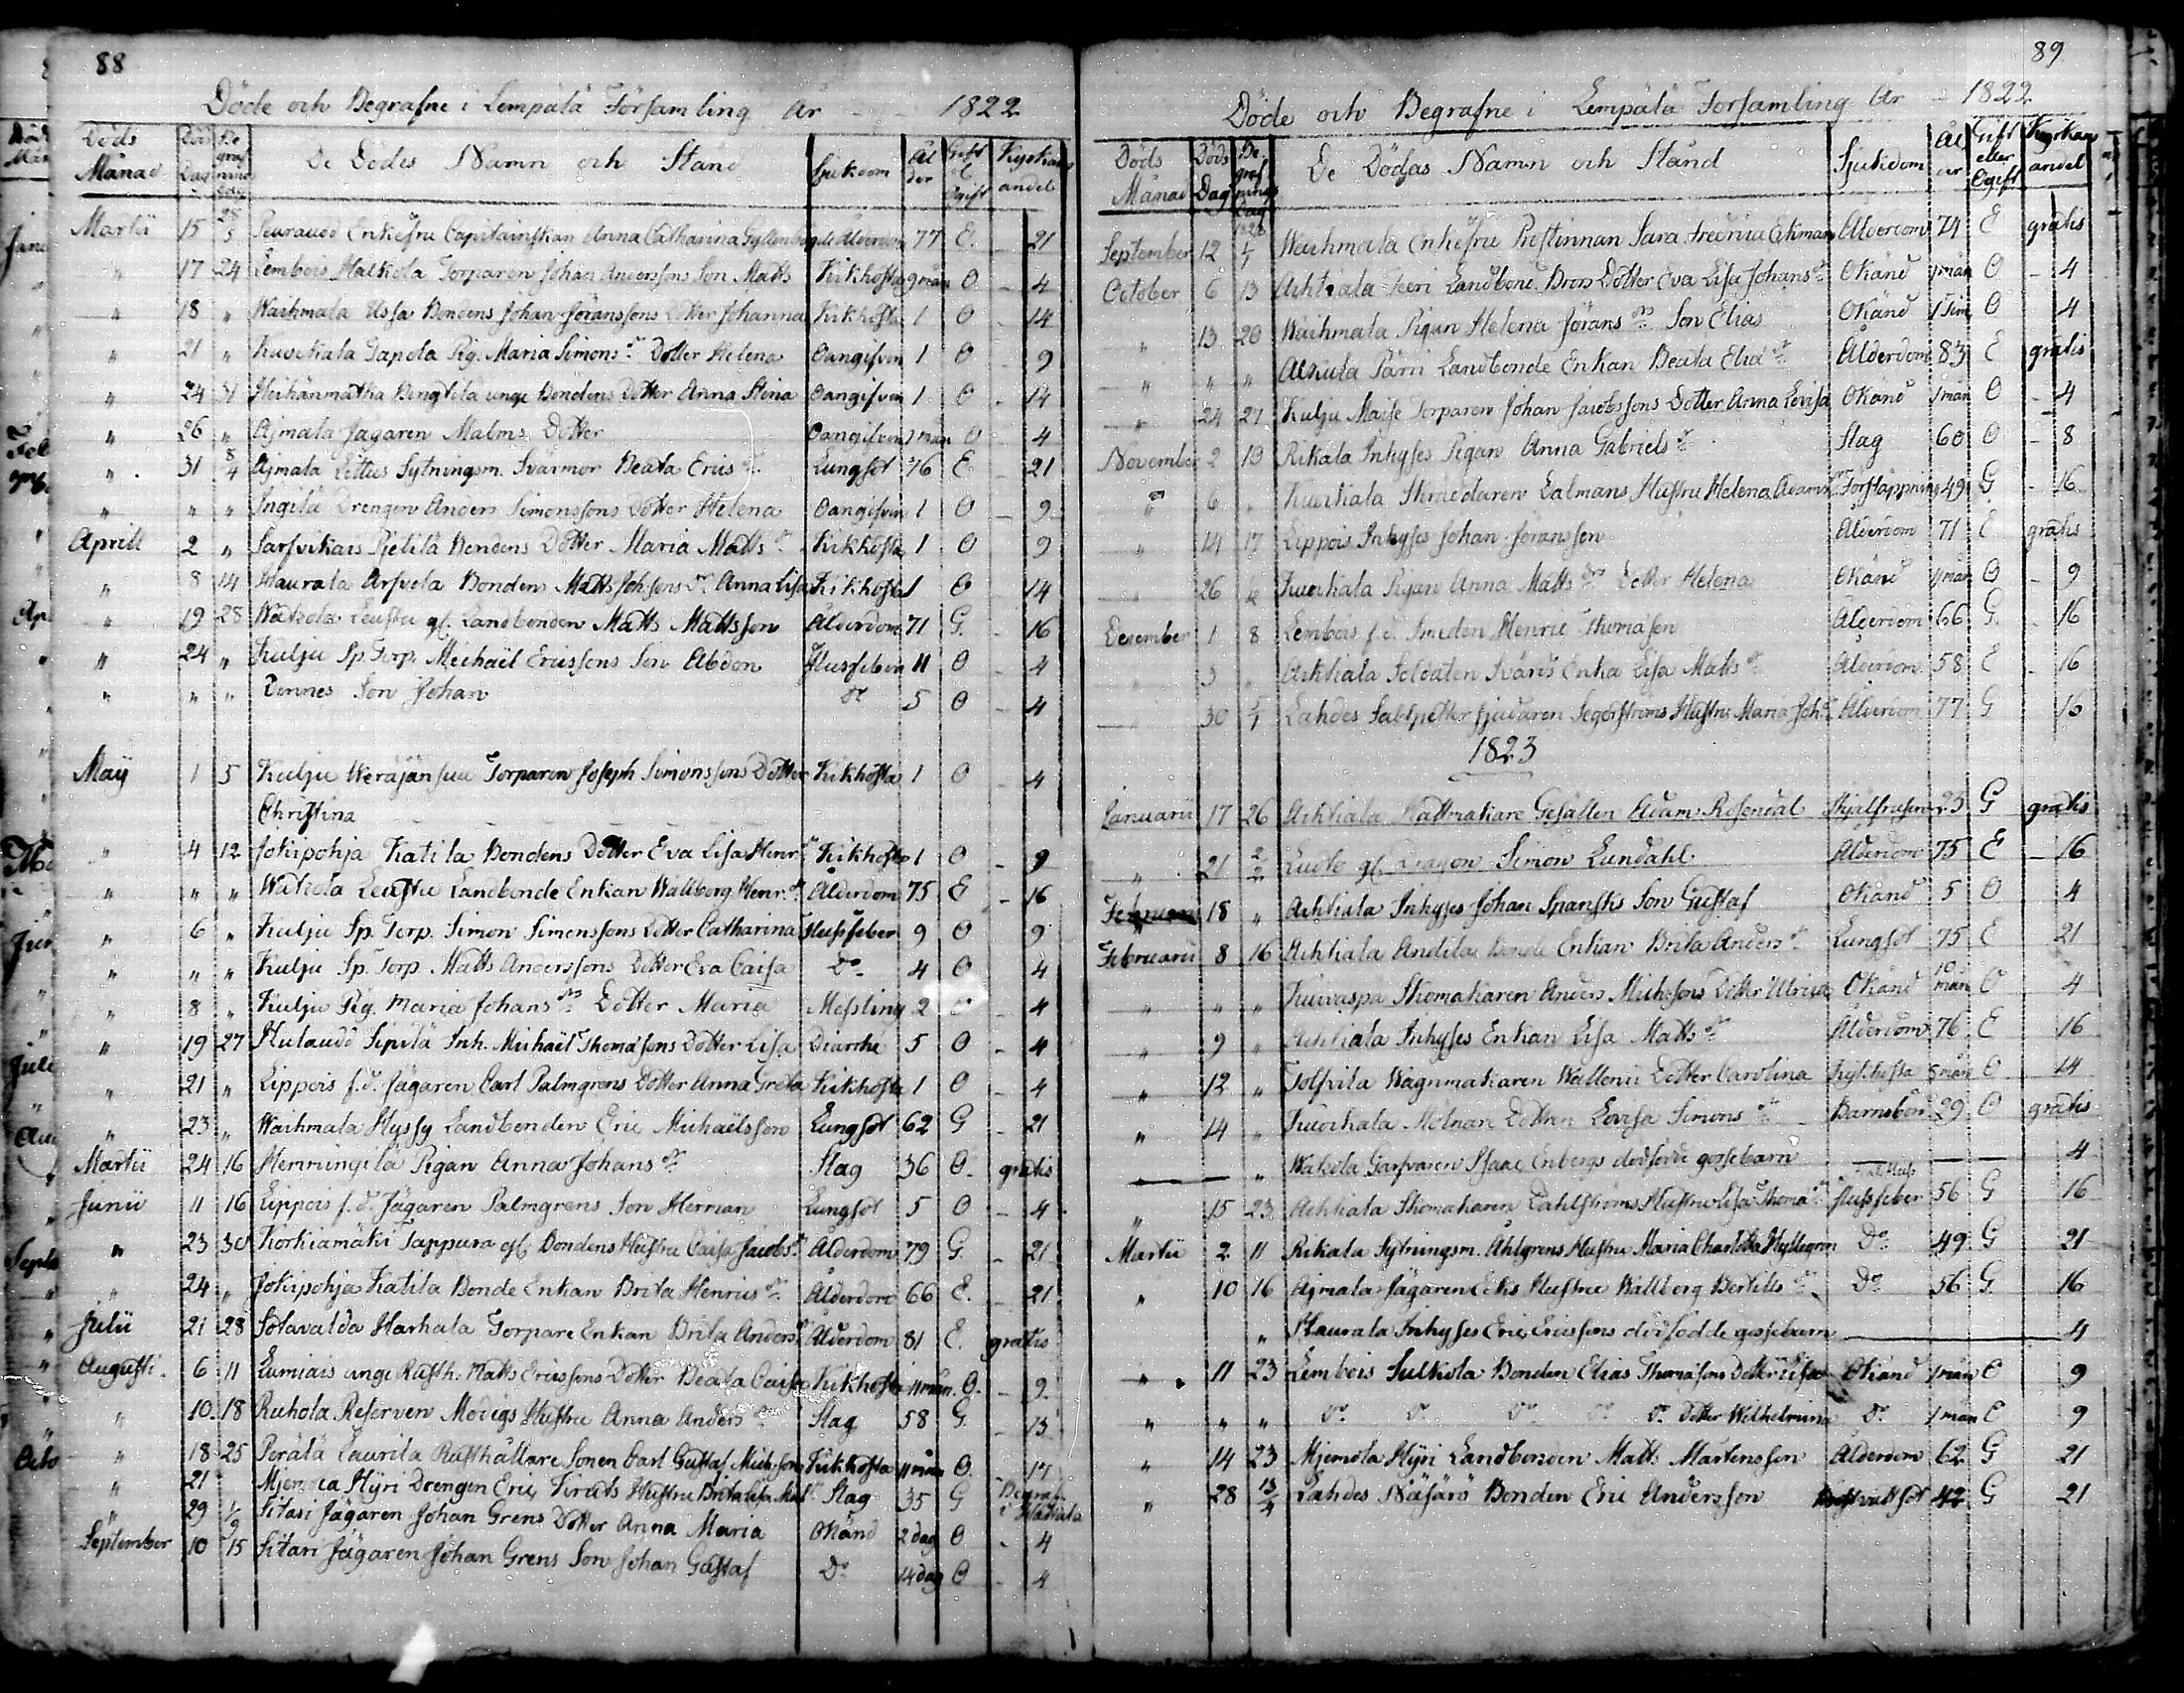 88
Döde och Begrafne i Lempälä Församling År 1822
Döds Månad Döds Dag Begrafnings Dag De Dödes Namn och Stånd Sjukdom Ålder Gift el. Ogift Kyrkans andel
Martii 15 28/3 Peuraudd Enkefru Capitainskan Anna Catharina Ålderdom 77 E. 21
" 17 24 Lembois Halkola Torparen Johan Anderssons Son Matts Kikhosta 9 mån O 4
" 18 " Waihmala Ussa Bondens Johan Jöranssons Dotter Johanna Kikhosta 1 O 14
" 21 " Kuokkala Tapola Pig. Maria Simons dr Dotter Helena Oangifven 1 O 9
" 24 31 Bengtilä unge Bondens Dotter Anna Stina Oangifven 1 O 14
" 26 " Ajmala Jägaren Malms Dotter Oangifven 1 mån O 4
" 31 8/4 Ajmala Lettus Sytningsm. Svärmor Beata Erics dr Lungsot 76 E. 21
" " " Ingilä Drengen Anders Simonssons Dotter Helena Oangifven 1 O 9
Aprill 2 " Sarfvikais Pietilä Bondens Dotter Maria Matts dr Kikhosta 1 O 9
" 8 14 Haurala Arfvola Bonden Matts Johssons dr Anna Lisa Kikhosta 1 O 14
" 19 28 Wakola Leustu gl. Landbonden Matts Mattsson Ålderdom 71 G. 16
" 24 " Kulju Sp. Torp. Michaël Ericssons Son Abdon Flussfeber 11 O 4
" " " Dennes Son Johan do 5 O 4
Maij 1 5 Kulju Weräjänsuu Torparen Joseph Simonssons Dotter Kikhosta 1 O 4
Christina
" 4 12 Jokipohja Katila Bondens Dotter Eva Lisa Henr. dr Kikhosta 1 O 9
" " " Wakola Leustu Landbonde Enkan Wallborg Henr. dr Ålderdom 75 E 16
" 6 " Kulju Sp. Torp. Simon Simonssons Dotter Catharina Flussfeber 9 O 9
" " " Kulju Sp. Torp. Matts Anderssons Dotter Eva Caisa Do 4 O 4
" 8 " Kulju Pig. Maria Johans dr Dotter Maria Messling 2 O 4
" 19 27 Hulaudd Sipilä Inh. Michaël Thomassons Dotter Lisa Diarrhe 5 O 4
" 21 " Lippois f.d. Jägaren Carl Palmgrens Dotter Anna Greta Kikhosta 1 O 4
" 23 " Waihmala Hyssy Landbonden Eric Michaëlsson Lungsot 62 G 21
Martii 24 16 Hemmingilä Pigan Anna Johans dr Slag 36 O gratis
Junii 11 16 Lippois f.d. Jägaren Palmgrens Son Herman Lungsot 5 O 4
" 23 30 Korkiamäki Tappura gl. Bondens Hustru Caisa Jacobs dr Ålderdom 79 G. 21
" 24 " Jokipohja Katila Bonde Enkan Brita Henrics dr Ålderdom 66 E. 21
Julii 21 28 Sotavalda Harhala Torpare Enkan Brita Anders dr Ålderdom 81 E. gratis
Augusti 6 11 Lumiais unge Rusth. Matts Ericssons Dotter Beata Caisa Kikhosta 11 mån. O. 9
" 10 18 Ruhola Reserven Modigs Hustru Anna Anders dr Slag 58 G. 13
" 18 25 Perälä Laurila Rusthållare Sonen Carl Gustaf Michsson Kikhosta 11 mån O. 17
" 21 Hyri Drengen Eric Hustru Brita Lisa Slag 35 G Begraf. i
" 29 1/9 Sitari Jägaren Johan Grens Dotter Anna Maria Okänd 2 dag O 4
September 10 15 Sitari Jägaren Johan Grens Son Johan Gustaf Do 14 dag O 4
89
Döde och Begrafne i Lempälä Församling År 1822
Döds Månad Döds Dag Begrafnings Dag De Dödas Namn och Stånd Sjukdom Ålder Gift eller Ogift Kyrkans andel
September 12 Waihmala Enkefru Prostinnan Sara Ekman Ålderdom 74 E gratis
October 6 13 Ahtiala Landbond. Brors Dotter Eva Lisa Johans dr Okänd 1 mån O 4
" 13 20 Waihmala Pigan Helena Jörans drs Son Elias Okänd 1 Tim O 4
" " " Alkula Pärri Landbonde Enkan Beata Elia dr Ålderdom 83 E gratis
" 24 27 Kulju Maise Torparen Johan Jacobssons Dotter Anna Lovisa Okänd 1 mån O 4
November 2 10 Rikala Inhyses Pigan Anna Gabriels dr Slag 60 O 8
" 6 " Kuokkala Skraddaren Ealmans Hustru Helena Adams dr Förstoppning 49 G. 16
" 14 17 Lippois Inhyses Johan Jöransson Ålderdom 71 E gratis
" 26 Kuokkala Pigan Anna Matts drs Dotter Helena Okänd 1 mån O 9
December 1 8 Lembois f.d. Smeden Henric Thomasson Ålderdom 66 G. 16
" 3 " Ahtiala Soldaten Svärds Enka Lisa Matts dr Ålderdom 58 E 16
" 30 5/1 Lahdes Saltpetter sjudaren Segerströms Hustru Maria Joh. dr Ålderdom 77 G 16
1823
Januarii 17 26 Ahtiala Hattmakare Gesällen Adam Rosendal 23 G gratis
" 21 2/2 Kuota gl. Dragon Simon Lundahl Ålderdom 75 E 16
18 " Ahtiala Inhyses Johan Spansks Son Gustaf Okänd 5 O 4
Februarii 8 16 Ahtiala Andila Bonde Enkan Brita Anders dr Lungsot 75 E 21
" " " Kuivaspä Skomakaren Anders Michssons Dotter Ulrica Okänd 10 mån O 4
" 9 " Ahtiala Inhyses Enkan Lisa Matts dr Ålderdom 76 E 16
" 12 " Tolfvila Wagnmakaren Wallenii Dotter Carolina Kikhosta 5 mån O 14
" 14 " Kuokkala Mölnare Dottren Lovisa Simons dr Barnsbörd 29 O gratis
" Wakola Garfvaren Isaac Enbergs dödfödde gossebarn 4
" 15 23 Ahtiala Skomakaren Dahlströms Hustru Lisa Thoma dr Flussfeber 56 G 16
Martii 2 11 Rikala Sytningsm. Åhlgrens Hustru Maria Charlotta Do 49 G 21
" 10 16 Ajmala Jägaren Eeks Hustru Wallborg Bertills dr Do 56 G 16
" Haurala Inhyses Eric Ericssons dödfödde gossebarn 4
" 11 23 Lembois Sulkola Bonden Elias Thomassons Dotter Lisa Okänd 1 mån E 9
" " " do do do do do Dotter Wilhelmina Do 1 mån E 9
" 14 23 Mjemola Hyri Landbonden Matts Mårtensson Ålderdom 62 G 21
" 28 13/4 Lahdes Näsärö Bonden Eric Andersson 42 G 21